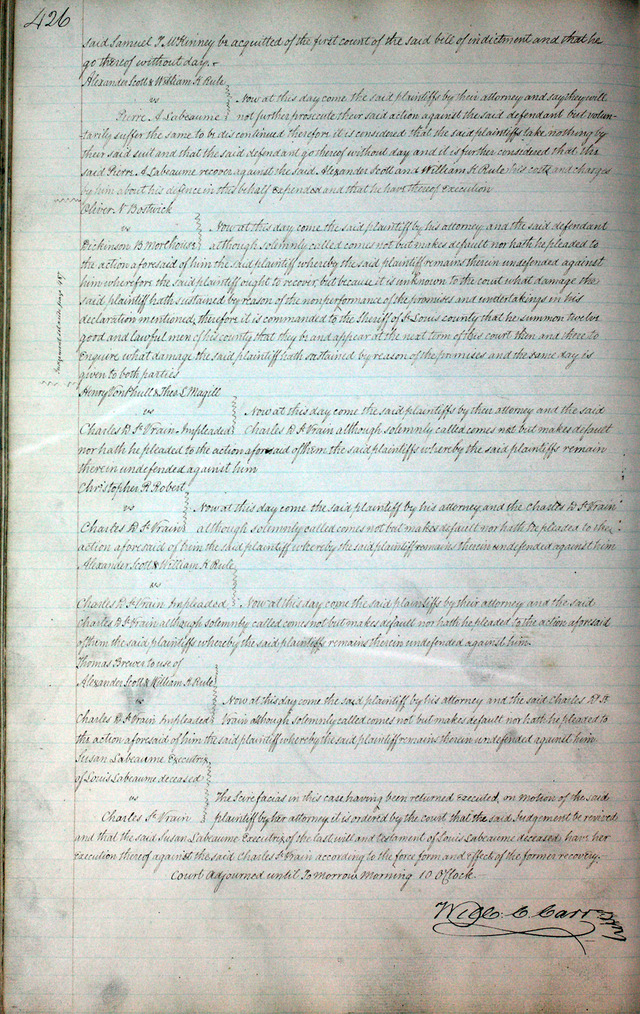 426
said Samuel T. McKinney be acquitted of the first count of the said bill of indictment and that he
go thereof without day.
Alexander Scott & William K Rule
vs
Now at this day come the said plaintiffs by their attorney and say they will
Pierre A Labeaume
not further prosecute their said action against the said defendant but volun-
tarily suffer the same to be discontinued therefore it is considered that the said plaintiffs take nothing by
their said suit and that the said defendant go thereof without day and it is further considered that the
said Pierre A Labeaume recover against the said Alexander Scott and William K Rule his costs and charges
by him about his defence in this behalf expended and that he have thereof execution
Oliver N Bostwick
vs
Now at this day come the said plaintiff by his attorney and the said defendant
Dickinson B Morehouse
although solemnly called comes not but makes default nor hath he pleaded to
the action aforesaid of him the said plaintiff whereby the said plaintiff remains therein undefended against
him wherefore the said plaintiff ought to recover, but because it is unknown to the court what damage the
said plaintiff hath sustained by reason of the nonperformance of the promises and undertakings in his
declaration mentioned, therefore it is commanded to the Sheriff of St. Louis county that he summon twelve
good and lawful men of his county that they be and appear at the next term of this court then and there to
Enquire what damage the said plaintiff hath sustained by reason of the premises and the same day is
given to both parties
Henry Von Phull & Theo. L Magill
vs
Now at this day come the said plaintiffs by their attorney and the said
Charles D St Vrain Impleaded
Charles D St Vrain although solemnly called comes not but makes default
nor hath he pleaded to the action aforesaid of them the said plaintiffs whereby the said plaintiffs remain
therein undefended against him
Christopher R Robert
vs
Now at this day come the said plaintiff by his attorney and the Charles D St Vrain
Charles D St Vrain
although solemnly called comes not but makes default nor hath he pleaded to the
action aforesaid of him the said plaintiff whereby the said plaintiff remains therein undefended against him
Alexander Scott & William K Rule
vs
Charles D St Vrain Impleaded
Now at this day come the said plaintiffs by their attorney and the said
Charles D St Vrain although solemnly called comes not but makes default nor hath he pleaded to the action aforesaid
of them the said plaintiffs whereby the said plaintiffs remains therein undefended against him
Thomas Brewer to use of
Alexander Scott & William K Rule
vs
Now at this day come the said plaintiff by his attorney and the said Charles D St
Charles D St Vrain Impleaded
Vrain although solemnly called comes not but makes default nor hath he pleaded to
the action aforesaid of him the said plaintiff whereby the said plaintiff remains therein undefended against him
Susan Labeaume Executrix
of Louis Labeaume deceased
vs
The Scire facias in this case having been returned Executed, on motion of the said
Charles St Vrain
plaintiff by her attorney it is ordered by the court that the said Judgement be revived
and that the said Susan Labeaume Executrix of the last will and testament of Louis Labeaume diseased, have her
execution thereof against the said Charles St Vrain according to the force form and effect of the former recovery.
Court Adjourned until Tomorrow Morning 10 O'Clock.
Wm. C. Carr